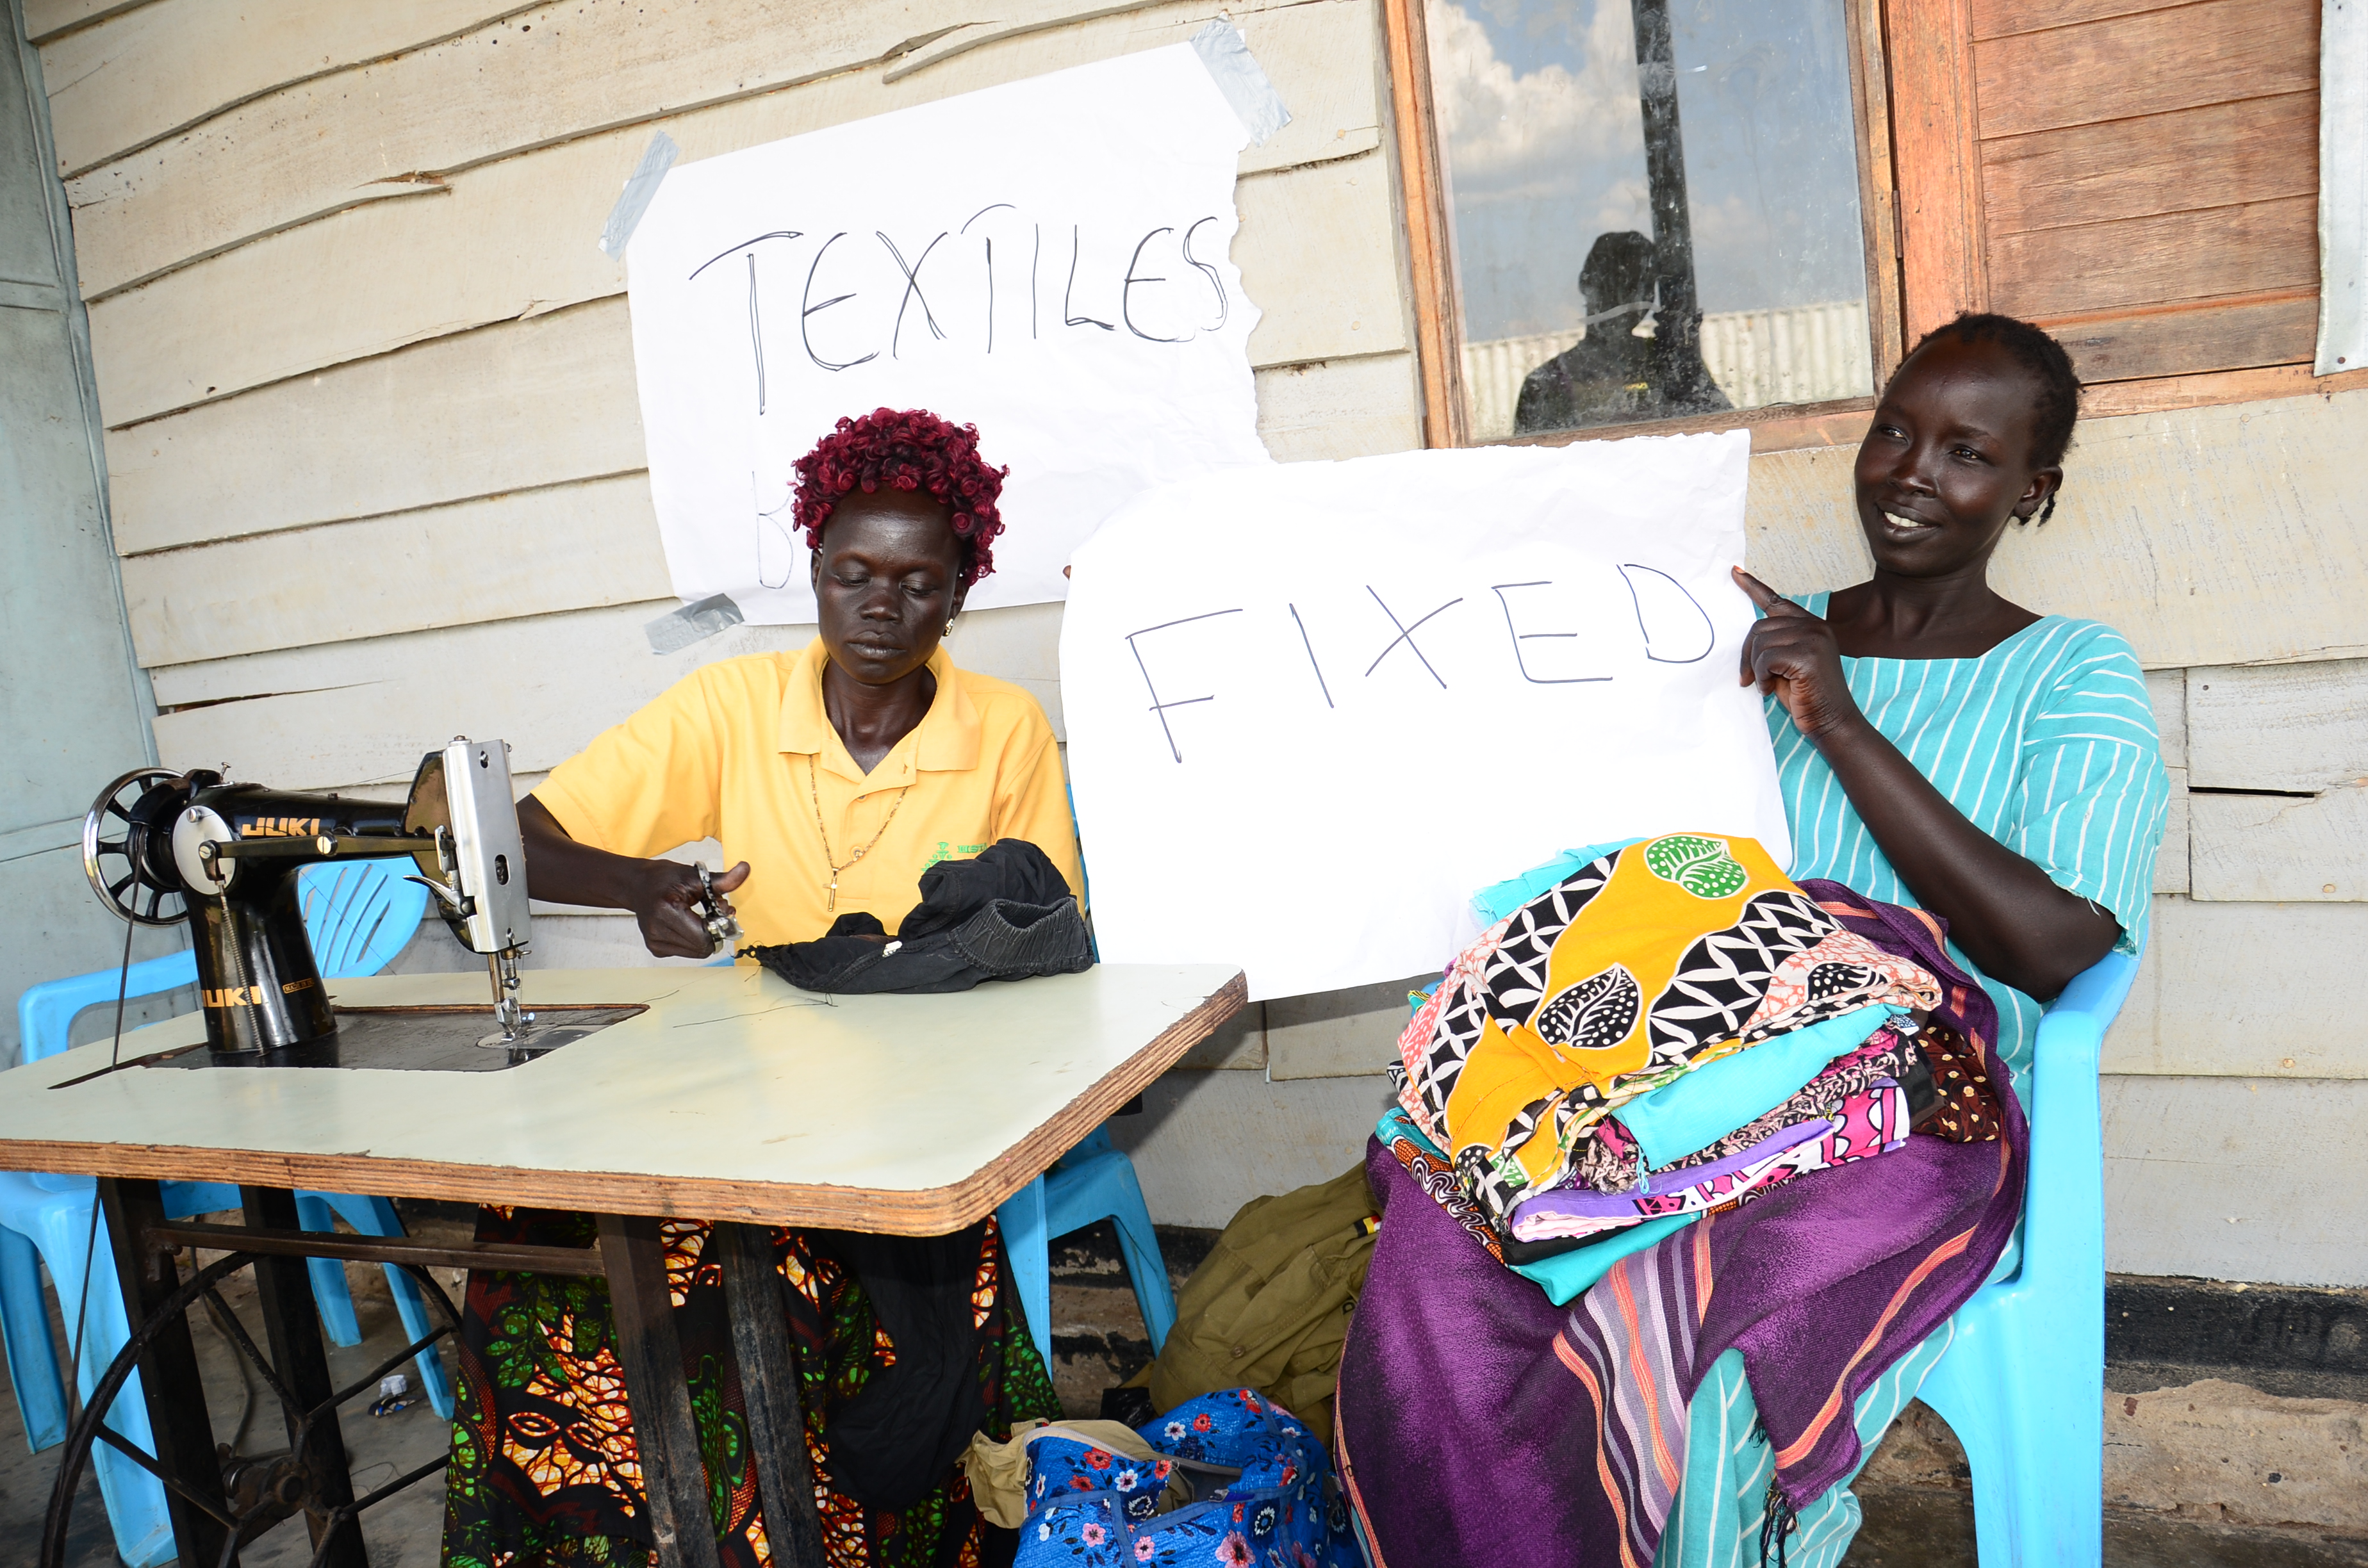 TEXTILES
B
FIXED
JUKI
JUKI